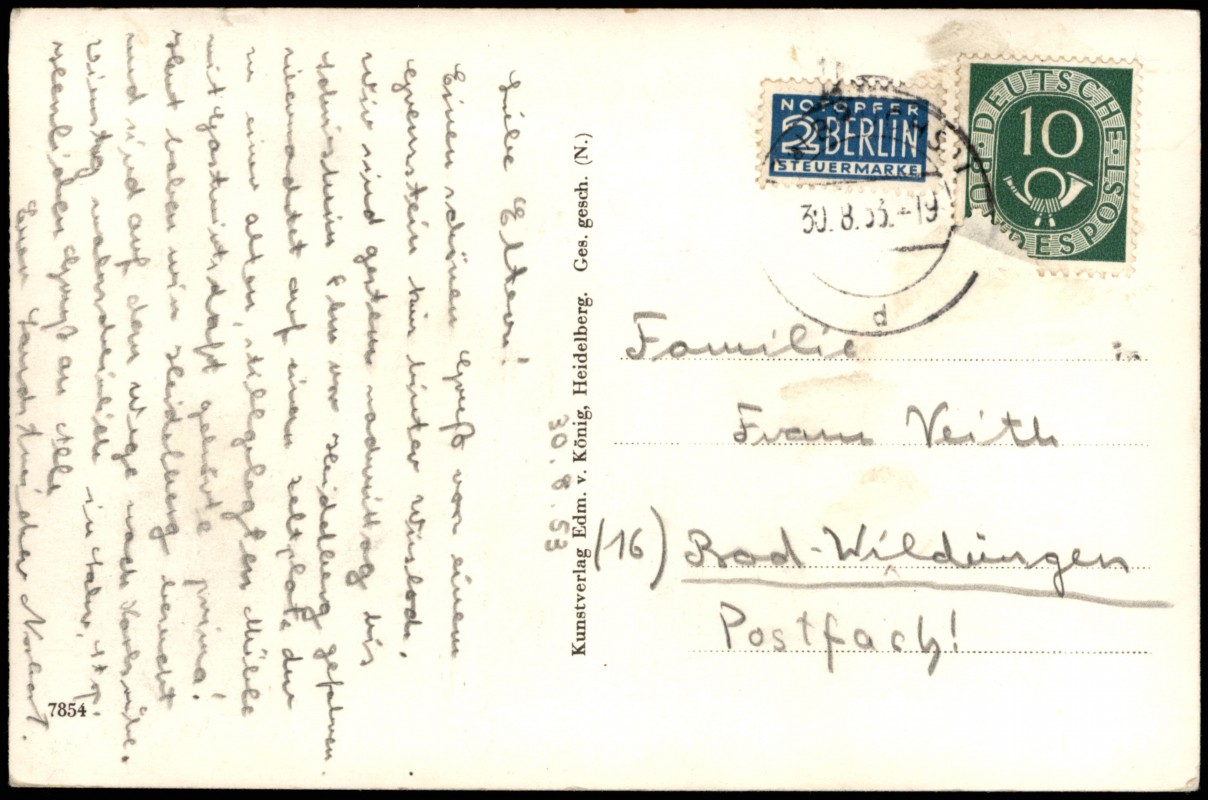 Liebe Eltern!
Einen schönen Gruß von einem
hinter
Wir sind gestern nachmittag bis
vor Heidelberg gefahren.
auf einen Zeltplatz der
zu einer alten, stillgelegten Mühle
mit Gastwirtschaft gehörte prima!
Heut haben wir Heidelberg besucht
und sind auf dem Wege nach Karlsruhe.
wahrscheinlich in
Herzlichen Gruß an Alle
Euer Norbert.
7854
Kunstverlag Edm. v. König, Heidelberg. Ges. gesch. (N.)
30.8.53
NOTOPFER
2 BERLIN
STEUERMARKE
DEUTSCHE
BUNDESPOST
10
30.8.53.-19
d
Familie
Franz Veith
(16) Bad-Wildungen
Postfach!